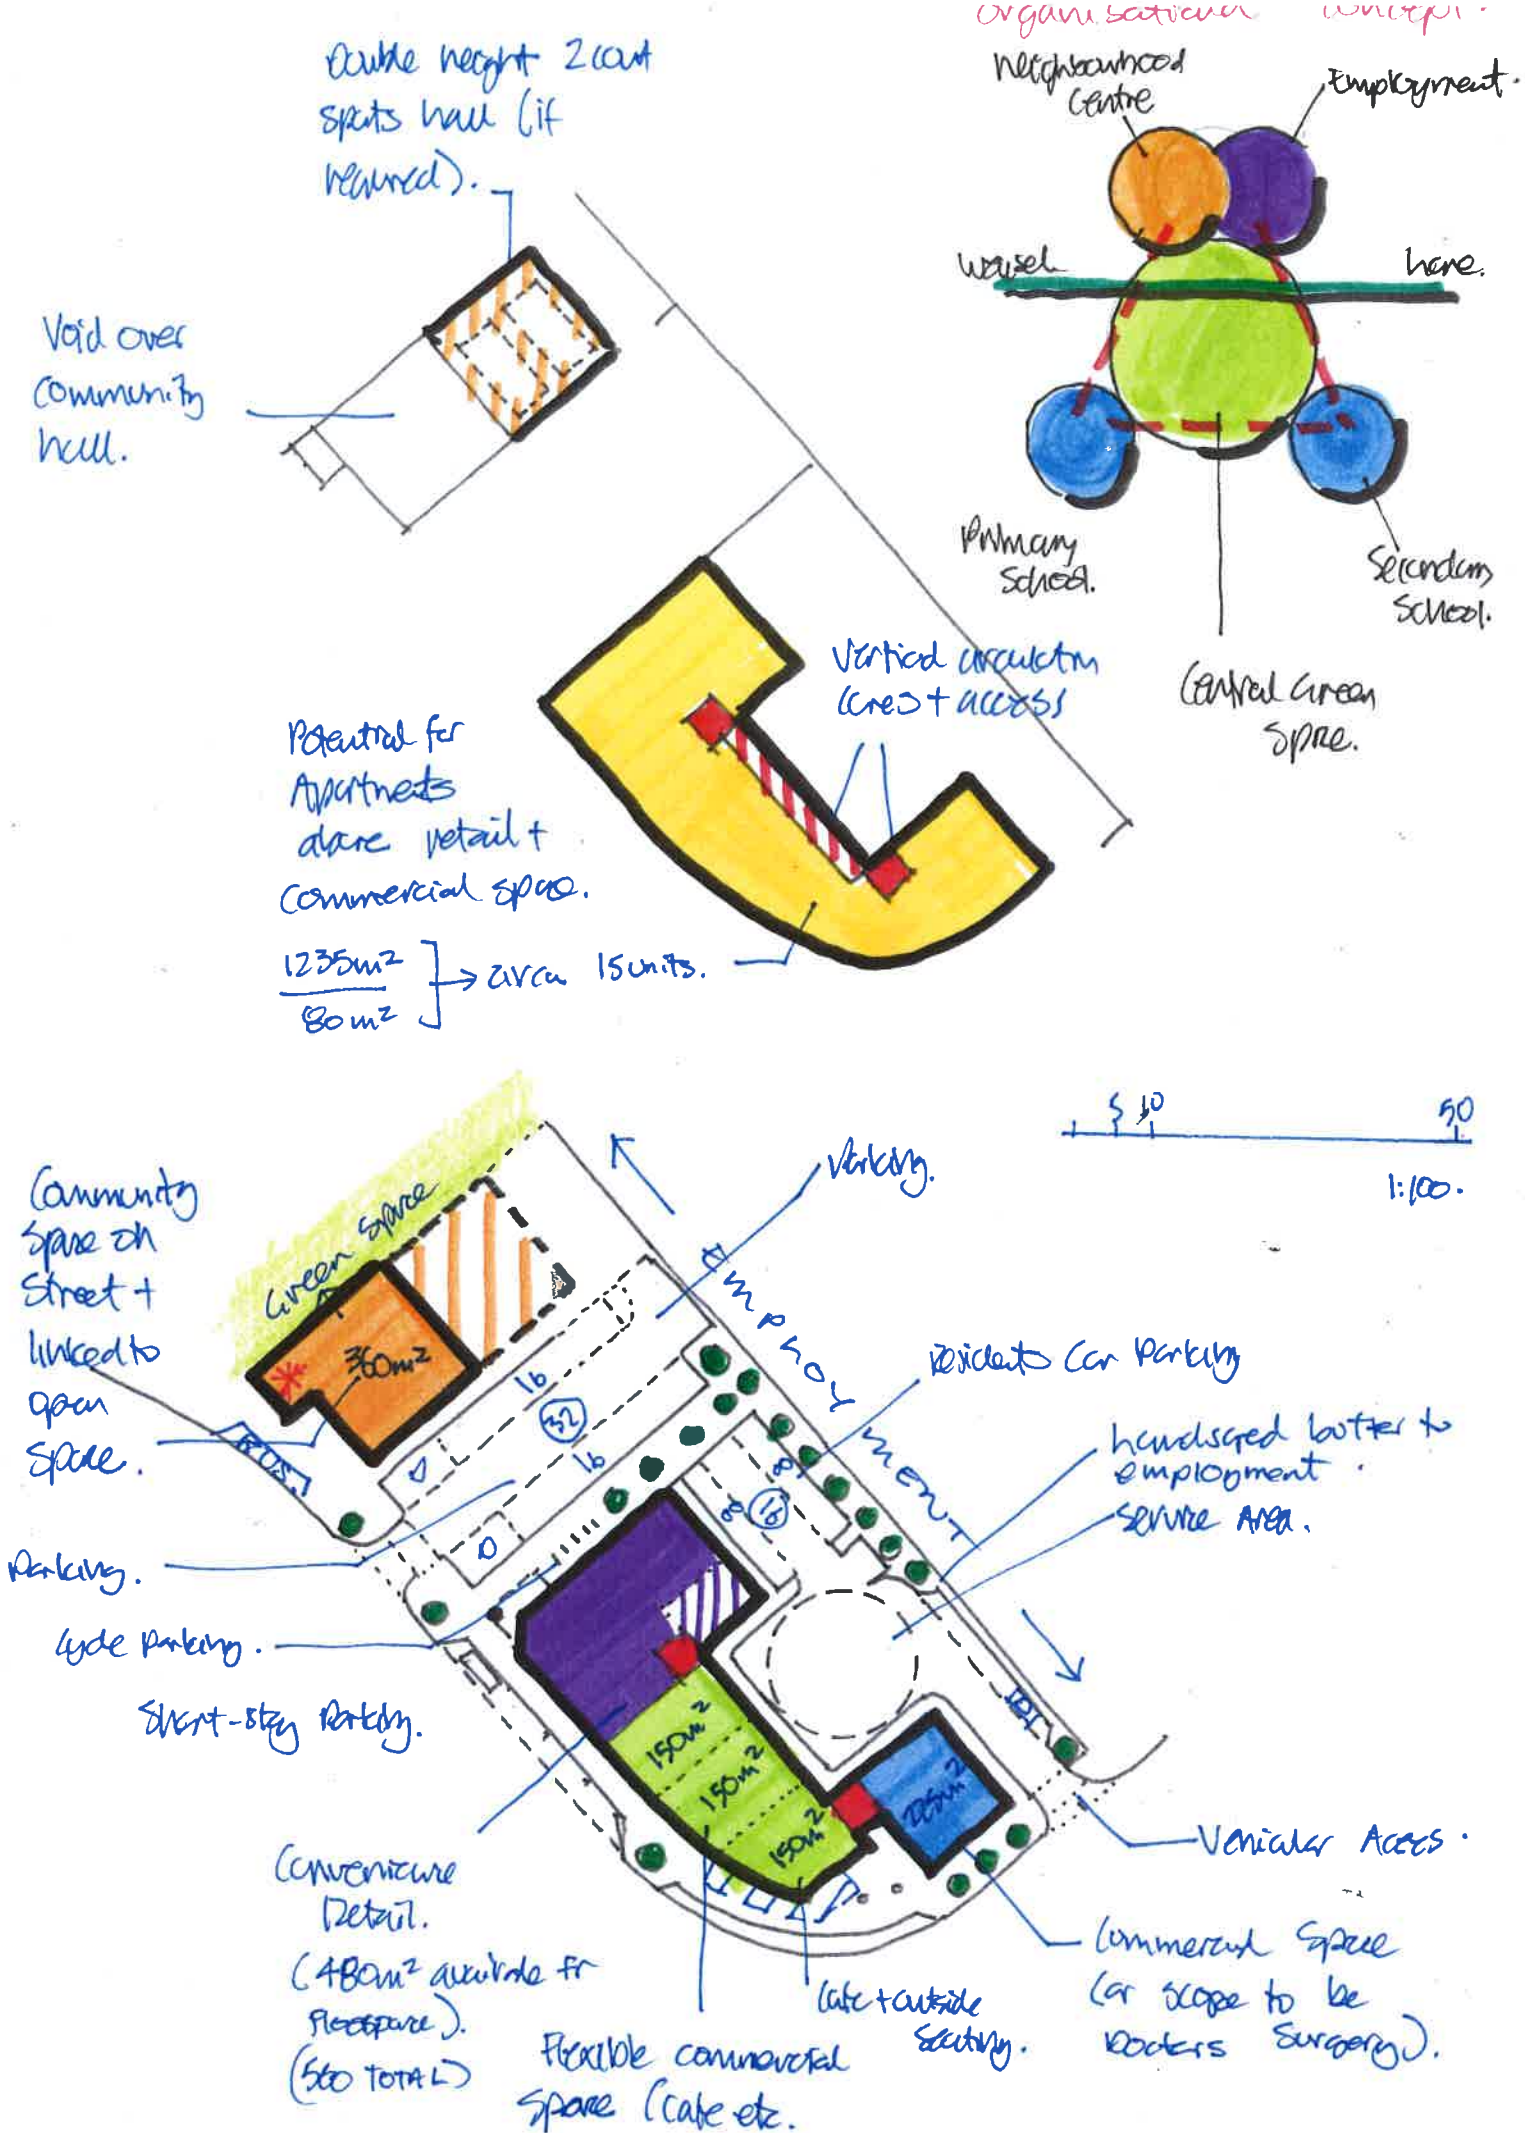 Organisational concept.
Neighbourhood
Centre
Employment.
Double height 2 court
sports hall (if
required).
Lane.
Void over
community
hall.
Primary
School.
Secondary
School.
Central Green
Space.
Vertical circulation
cores + access
Potential for
Apartments
above retail +
commercial space.
1235m²
80m²
→ circa 15 units.
5 10 50
1:100.
Parking.
Community
Space on
Street +
linked to
open
space.
Green Space
360m²
EMPLOYMENT
Residents Car Parking
16
32
16
BUS.
D
D
8
8
16
landscaped buffer to
employment.
Service Area.
Parking.
Cycle Parking.
Short-stay Parking.
150m²
150m²
150m²
225m²
Vehicular Access.
Convenience
Retail.
(480m² available for
floorspace).
(560 TOTAL)
Flexible commercial
Space (cafe etc.
Cafe + outside
Seating.
Commercial Space
(or scope to be
Doctors Surgery).